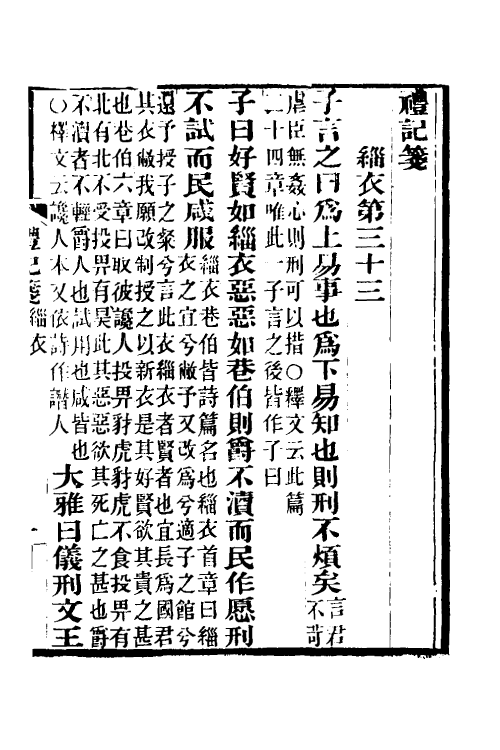 禮記箋
緇衣第三十三
子言之曰爲上易事也爲下易知也則刑不煩矣言君
不苛
虐臣無姦心則刑可以措○釋文云此篇
二十四章唯此一子言之後皆作子曰
子曰好賢如緇衣惡惡如巷伯則爵不瀆而民作愿刑
不試而民咸服緇衣巷伯皆詩篇名也緇衣首章曰緇
衣之宜兮敝予又改爲兮適子之館兮
還予授子之粲兮言此衣緇衣者賢者也宜長爲國君
其衣敝我願改制授之以新衣是其好賢欲其貴之甚
也巷伯六章曰取彼讒人投畀豺虎豺虎不食投畀有
北有北不受投畀有昊此其惡惡欲其死亡之甚也爵
不瀆者不輕爵人也試用也咸皆也
○釋文云讒人本又依詩作譖人
大雅曰儀刑文王
禮記箋 緇衣
一